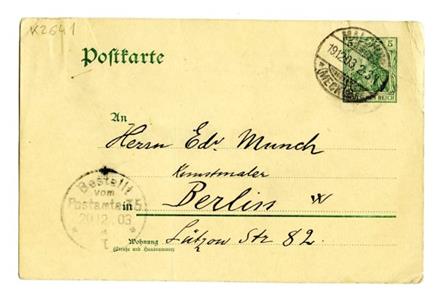 K2641
Postkarte
5
REICH
MALCHIN
19.12.03. 2-3N
(MECKLB)
An
Herrn Edv. Munch
Kunstmaler
in Berlin W
Wohnung Lützow Str 82.
(Straße und Hausnummer)
Bestellt
vom
Postamte 35
20.12.03
1